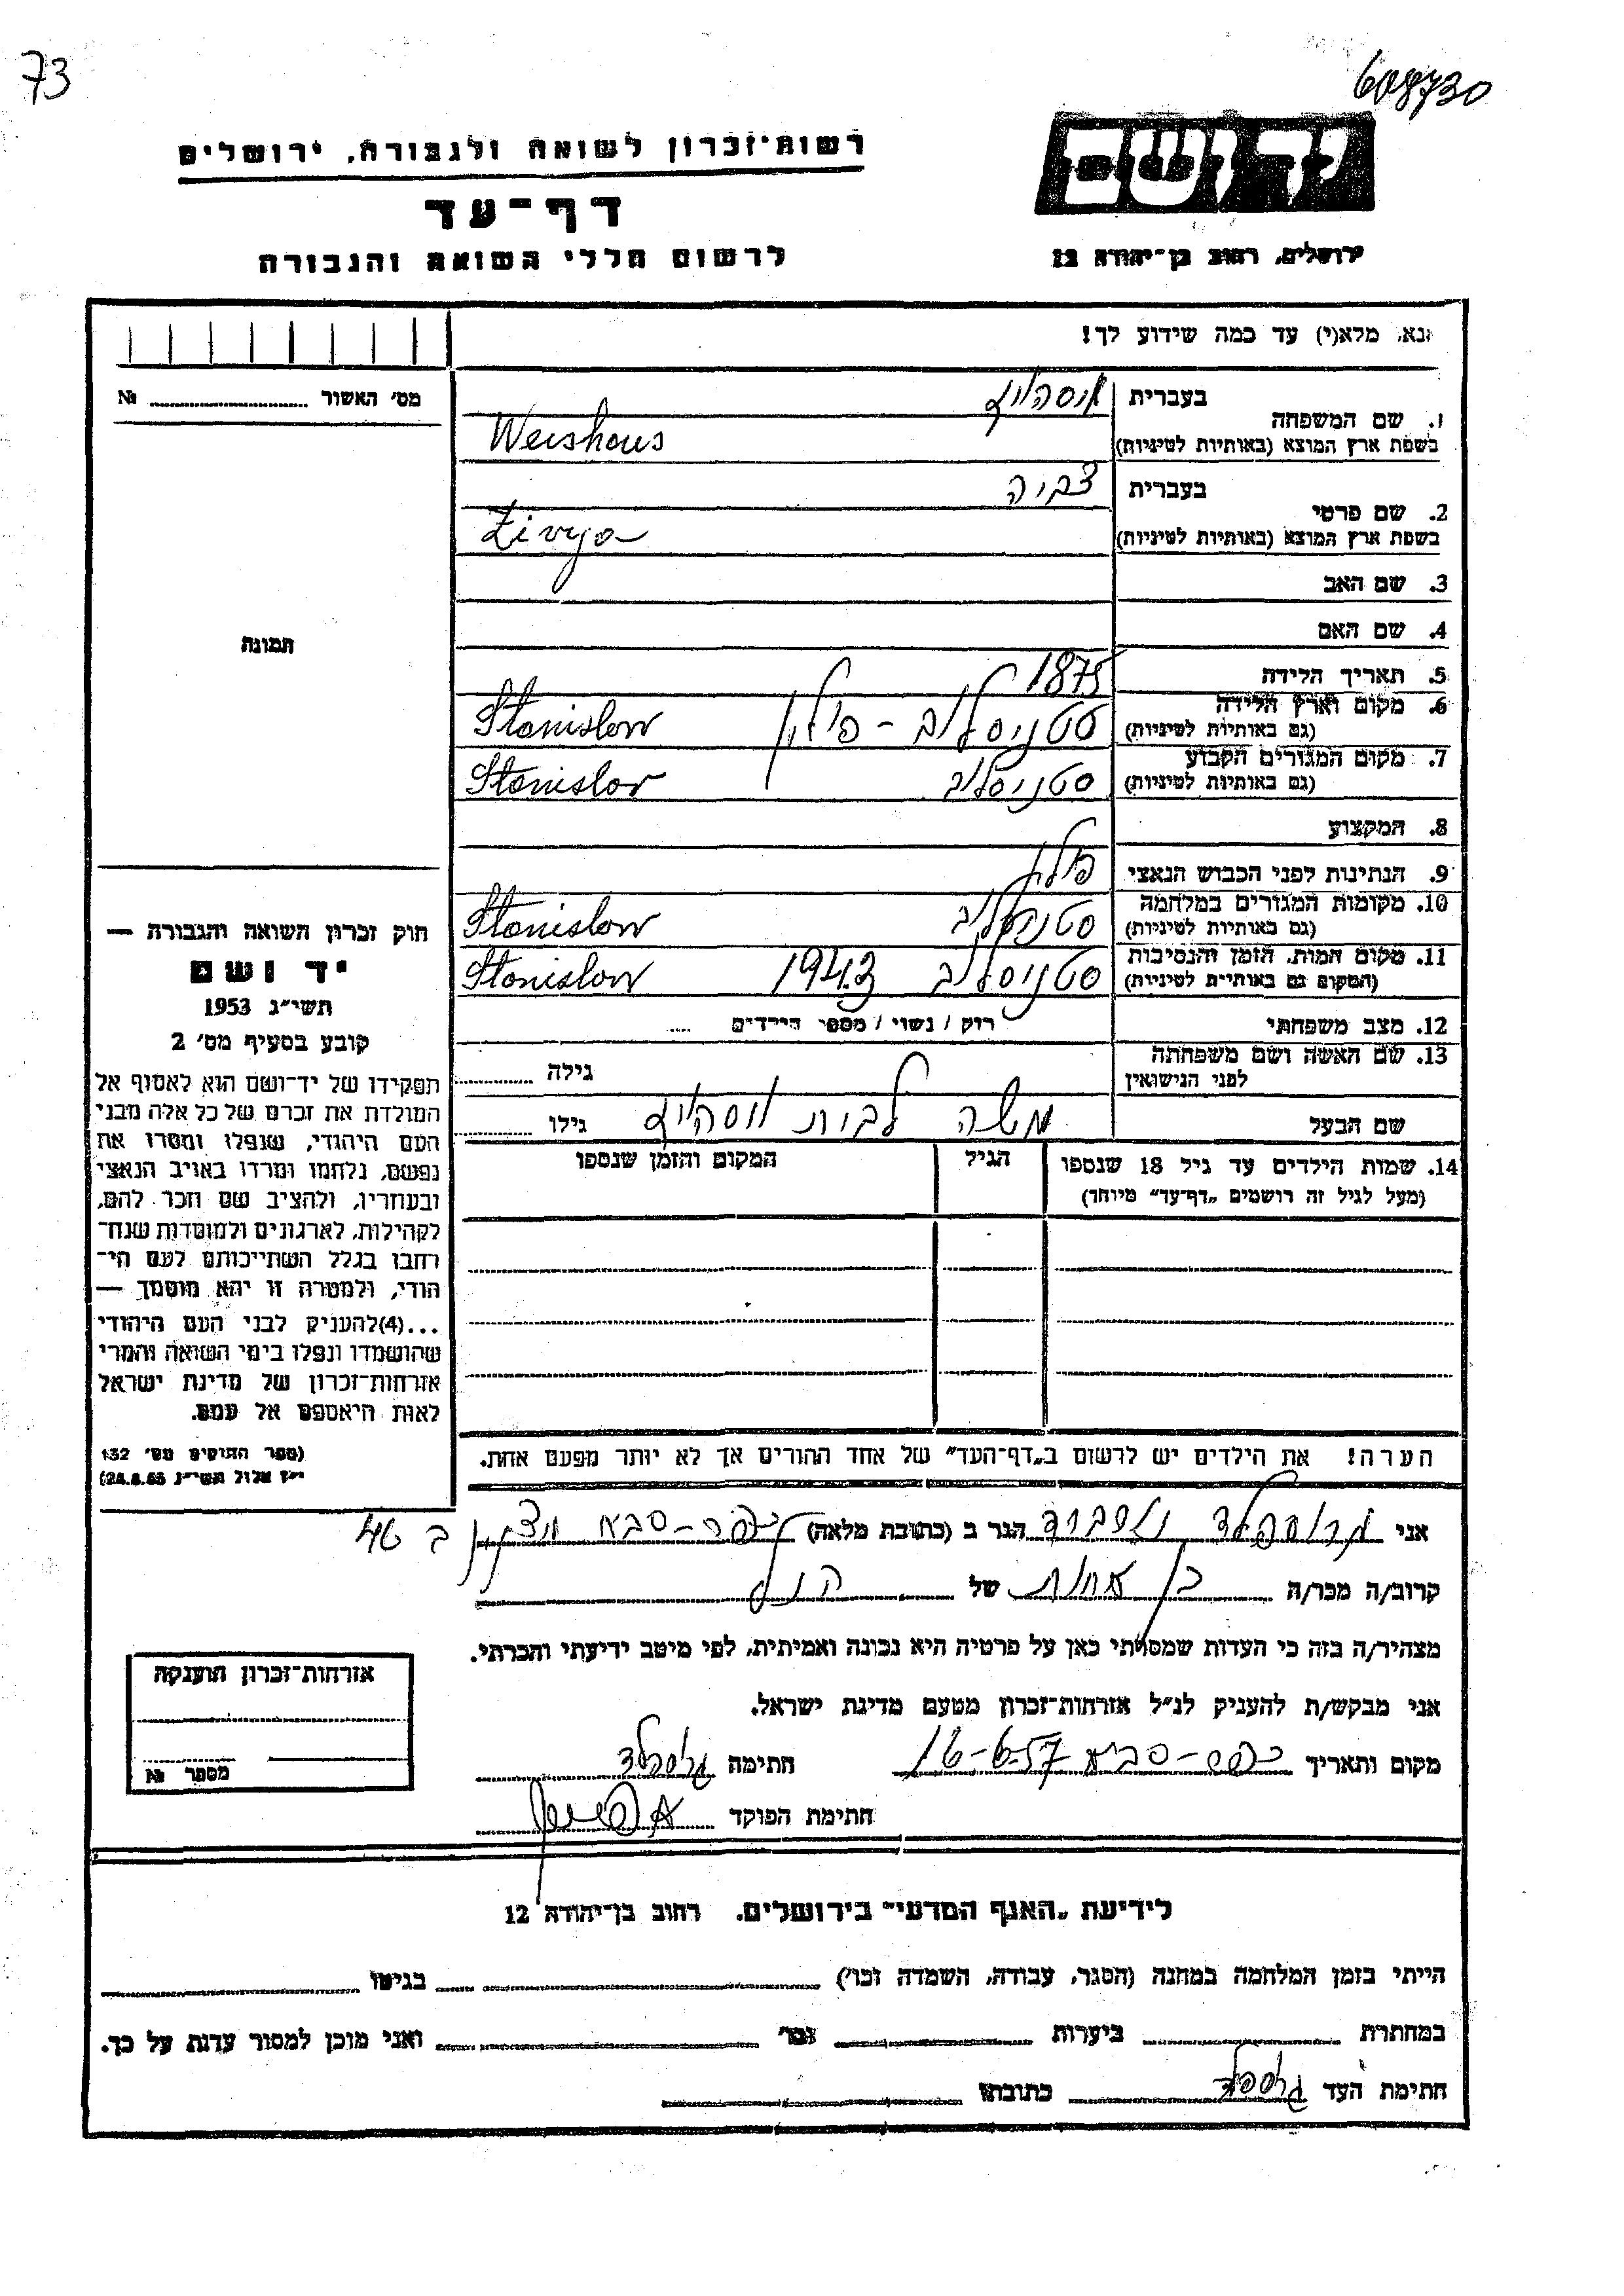 73
608730
יד ושם
רשות-זכרון לשואה ולגבורה, ירושלים
דף-עד
לרשום חללי השואה והגבורה
ירושלים, רחוב בן-יהודה 12
נא, מלא(י) עד כמה שידוע לך!
מס׳ האשור № 
1. שם המשפחה
בעברית
בשפת ארץ המוצא (באותיות לטיניות) Weishaus
2. שם פרטי
בעברית צביה
בשפת ארץ המוצא (באותיות לטיניות) Zivya
3. שם האב
4. שם האם
5. תאריך הלידה 1875
6. מקום וארץ הלידה סטניסלוב - פולין Stanislow
(גם באותיות לטיניות)
7. מקום המגורים הקבוע סטניסלוב Stanislow
(גם באותיות לטיניות)
8. המקצוע
9. הנתינות לפני הכבוש הנאצי פולין
10. מקומות המגורים במלחמה סטניסלוב Stanislow
(גם באותיות לטיניות)
11. מקום המות, הזמן והנסיבות סטניסלוב 1943 Stanislow
(המקום גם באותיות לטיניות)
12. מצב משפחתי רוק / נשוי / מספר הילדים
13. שם האשה ושם משפחתה
לפני הנישואין
גילה
שם הבעל משה לבית גילו
14. שמות הילדים עד גיל 18 שנספו הגיל המקום והזמן שנספו
(מעל לגיל זה רושמים „דף-עד” מיוחד)
הערה! את הילדים יש לרשום ב„דף-העד” של אחד ההורים אך לא יותר מפעם אחת.
תמונה
חוק זכרון השואה והגבורה —
יד ושם
תשי״ג 1953
קובע בסעיף מס׳ 2
תפקידו של יד-ושם הוא לאסוף אל
המולדת את זכרם של כל אלה מבני
העם היהודי, שנפלו ומסרו את
נפשם, נלחמו ומרדו באויב הנאצי
ובעוזריו, ולהציב שם וזכר להם,
לקהילות, לארגונים ולמוסדות שנח-
רבו בגלל השתייכותם לעם הי-
הודי, ולמטרה זו יהא מוסמך —
...(4) להעניק לבני העם היהודי
שהושמדו ונפלו בימי השואה והמרי
אזרחות-זכרון של מדינת ישראל
לאות היאספם אל עמם.
(ספר החוקים מס׳ 132
י״ז אלול תשי״ג
אני הגר ב (כתובת מלאה) כפר-סבא ב 46
קרוב/ה מכר/ה בן אחות של
מצהיר/ה בזה כי העדות שמסרתי כאן על פרטיה היא נכונה ואמיתית, לפי מיטב ידיעתי והכרתי.
אני מבקש/ת להעניק לנ״ל אזרחות-זכרון מטעם מדינת ישראל.
מקום ותאריך כפר-סבא 16-6-57 חתימה
חתימת הפוקד
אזרחות-זכרון הוענקה
מספר №
לידיעת „האגף המדעי” בירושלים, רחוב בן-יהודה 12
הייתי בזמן המלחמה במחנה (הסגר, עבודה, השמדה וכו׳) בגיטו
במחתרת ביערות וכו׳ ואני מוכן למסור עדות על כך.
חתימת העד כתובתו